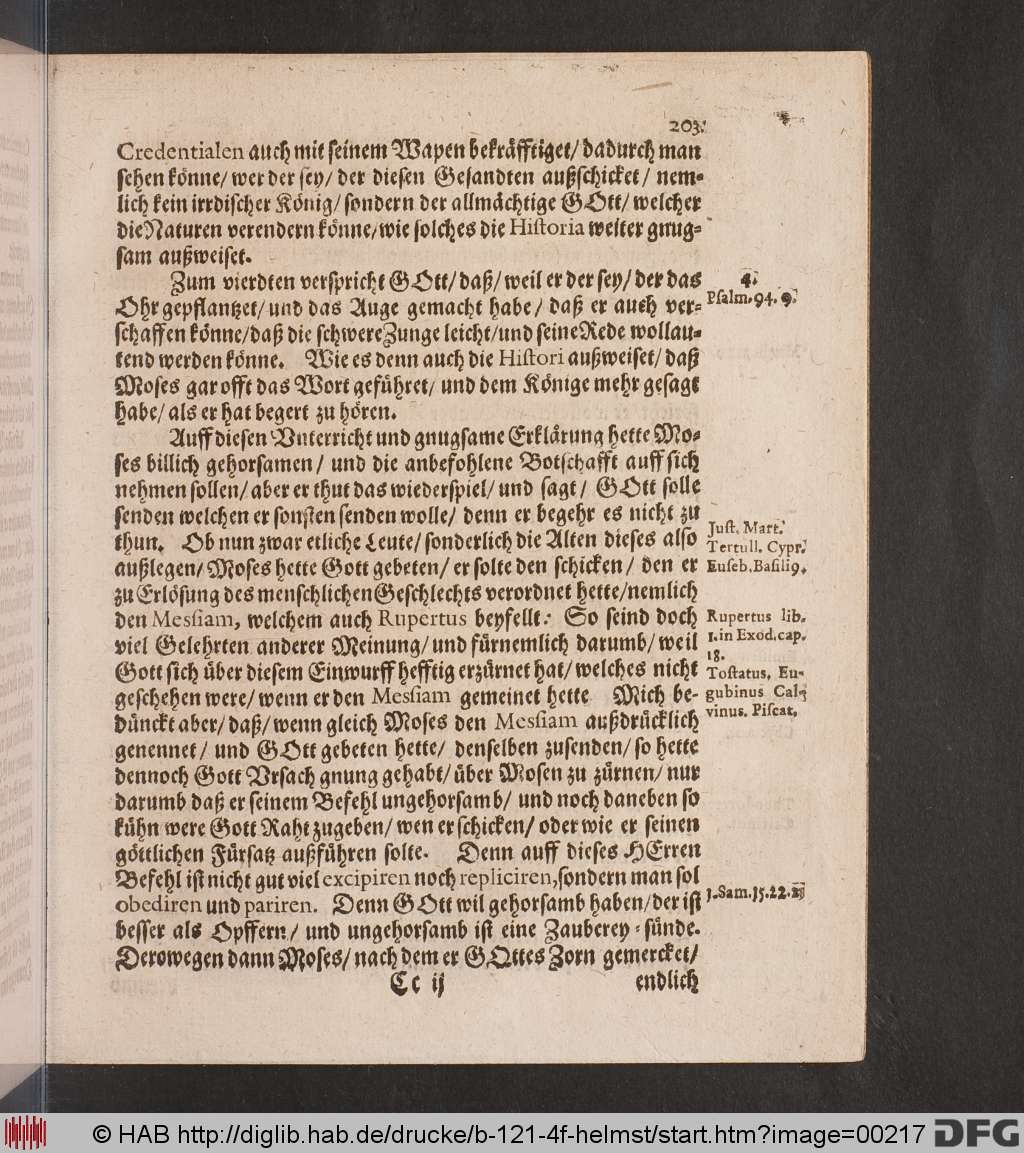 203.
Credentialen auch mit seinem Wapen bekräfftiget/ dadurch man
sehen könne/ wer der sey/ der diesen Gesandten außschicket/ nem-
lich kein irrdischer König/ sondern der allmächtige GOtt/ welcher
die Naturen verendern könne/ wie solches die Historia weiter gnug-
sam außweiset.
Zum vierdten verspricht GOtt/ daß/ weil er der sey/ der das
4.
Ohr gepflantzet/ und das Auge gemacht habe/ daß er auch ver-
Psalm. 94. 9.
schaffen könne/ daß die schwere Zunge leicht/ und seine Rede wollau-
tend werden könne. Wie es denn auch die Histori außweiset/ daß
Moses gar offt das Wort geführet/ und dem Könige mehr gesagt
habe/ als er hat begert zu hören.
Auff diesen Vnterricht und gnugsame Erklärung hette Mo-
ses billich gehorsamen/ und die anbefohlene Botschafft auff sich
nehmen sollen/ aber er thut das wiederspiel/ und sagt/ GOtt solle
senden welchen er sonsten senden wolle/ denn er begehr es nicht zu
thun. Ob nun zwar etliche Leute/ sonderlich die Alten dieses also
außlegen/ Moses hette Gott gebeten/ er solte den schicken/ den er
zu Erlösung des menschlichen Geschlechts verordnet hette/ nemlich
den Messiam, welchem auch Rupertus beyfellt: So seind doch
viel Gelehrten anderer Meinung/ und fürnemlich darumb/ weil
Gott sich über diesem Einwurff hefftig erzürnet hat/ welches nicht
geschehen were/ wenn er den Messiam gemeinet hette Mich be-
dünckt aber/ daß/ wenn gleich Moses den Messiam außdrücklich
genennet/ und GOtt gebeten hette/ denselben zusenden/ so hette
dennoch Gott Vrsach gnung gehabt/ über Mosen zu zürnen/ nur
darumb daß er seinem Befehl ungehorsamb/ und noch daneben so
kühn were Gott Raht zugeben/ wen er schicken/ oder wie er seinen
göttlichen Fürsatz außführen solte. Denn auff dieses HErren
Befehl ist nicht gut viel excipiren noch repliciren, sondern man sol
obediren und pariren. Denn GOtt wil gehorsamb haben/ der ist
besser als Opffern/ und ungehorsamb ist eine Zauberey-sünde.
Derowegen dann Moses/ nach dem er GOttes Zorn gemercket/
Cc ij
endlich
Just. Mart.
Tertull. Cypr.
Euseb. Basili9.
Rupertus lib.
1. in Exod. cap.
18.
Tostatus, Eu-
gubinus Cal-
vinus. Piscat.
1. Sam. 15. 22. 23
© HAB http://diglib.hab.de/drucke/b-121-4f-helmst/start.htm?image=00217
DFG